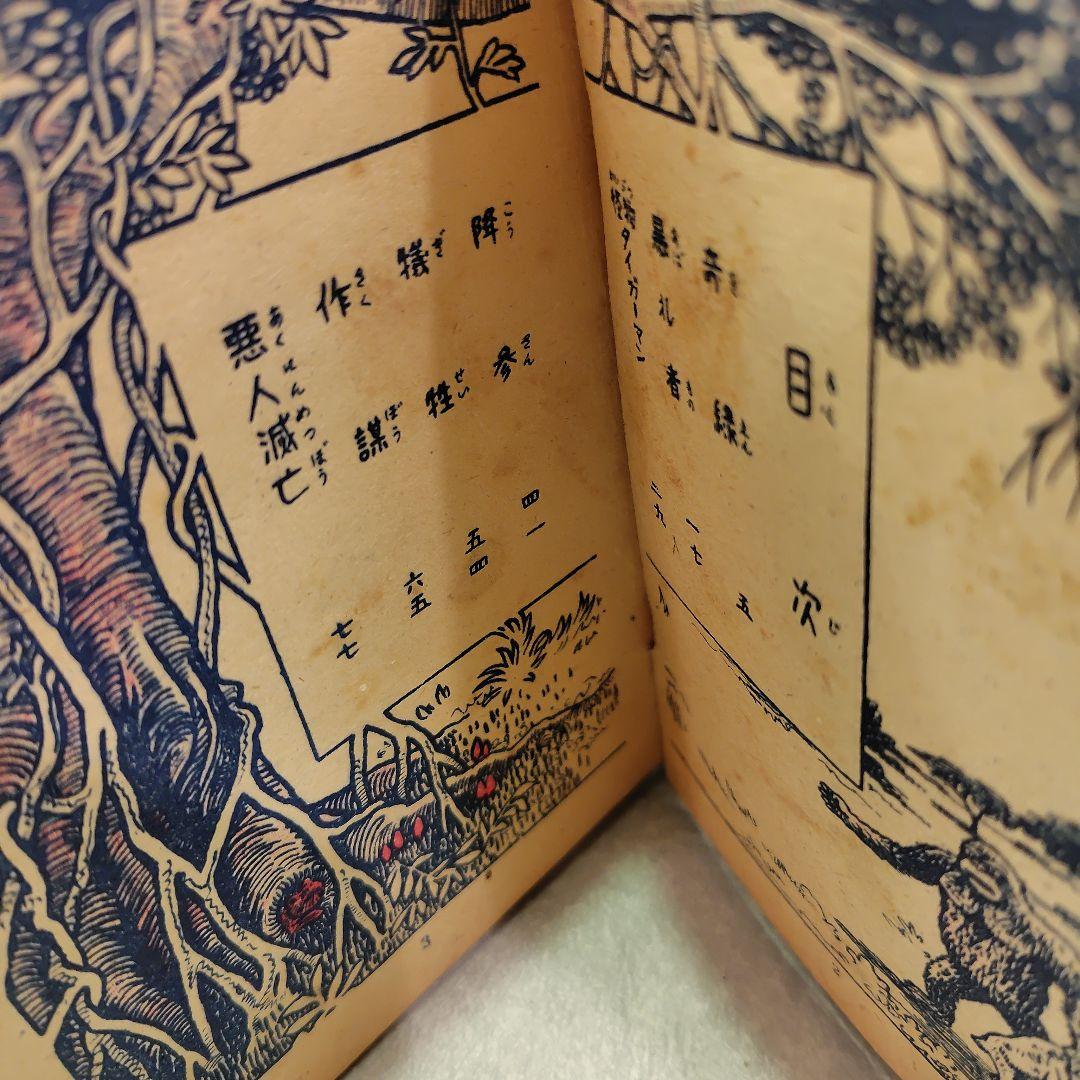 目次
奇縁 五
悪礼者 一七
怪物タイガーマン 二九
降参 四一
犠牲 五四
作謀 六五
悪人滅亡 七七
3